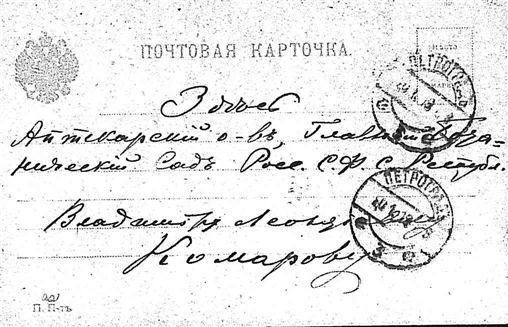 ПОЧТОВАЯ КАРТОЧКА.
ПЕТРОГРАД
Здѣсь
Аптекарскій о-въ, Главный Бота-
ническій Садъ Росс. С. Ф. С. Республ.
ПЕТРОГРАД
Владиміру
Комарову
П. П-тъ